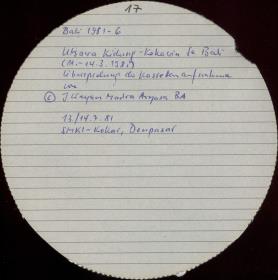 17
Bali 1981-6
Utsawa Kidung-Kekawin se Bali
(11.-14.3.1981)
Überspielung der Kassettenaufnahme
von
I Wayan Madra Aryasa BA
13./14.3.81
SMKI-Kokar, Denpasar